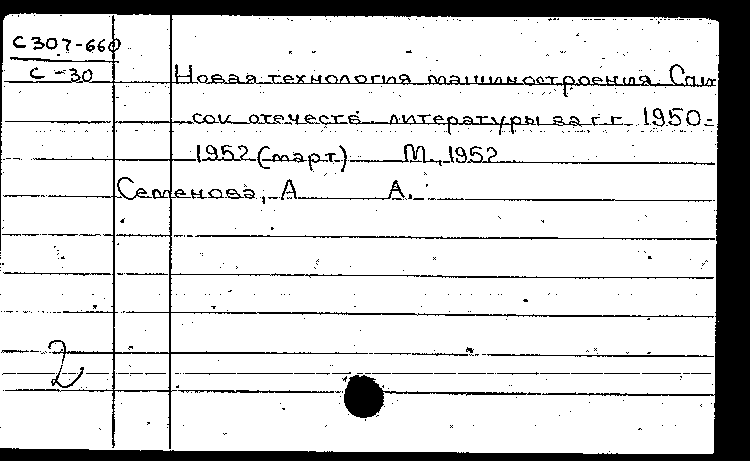 С307-660
С-30
Новая технология машиностроения. Спи
сок отечеств. литературы за г.г. 1950-
1952 (март) М., 1952
Семенова, А А.
2